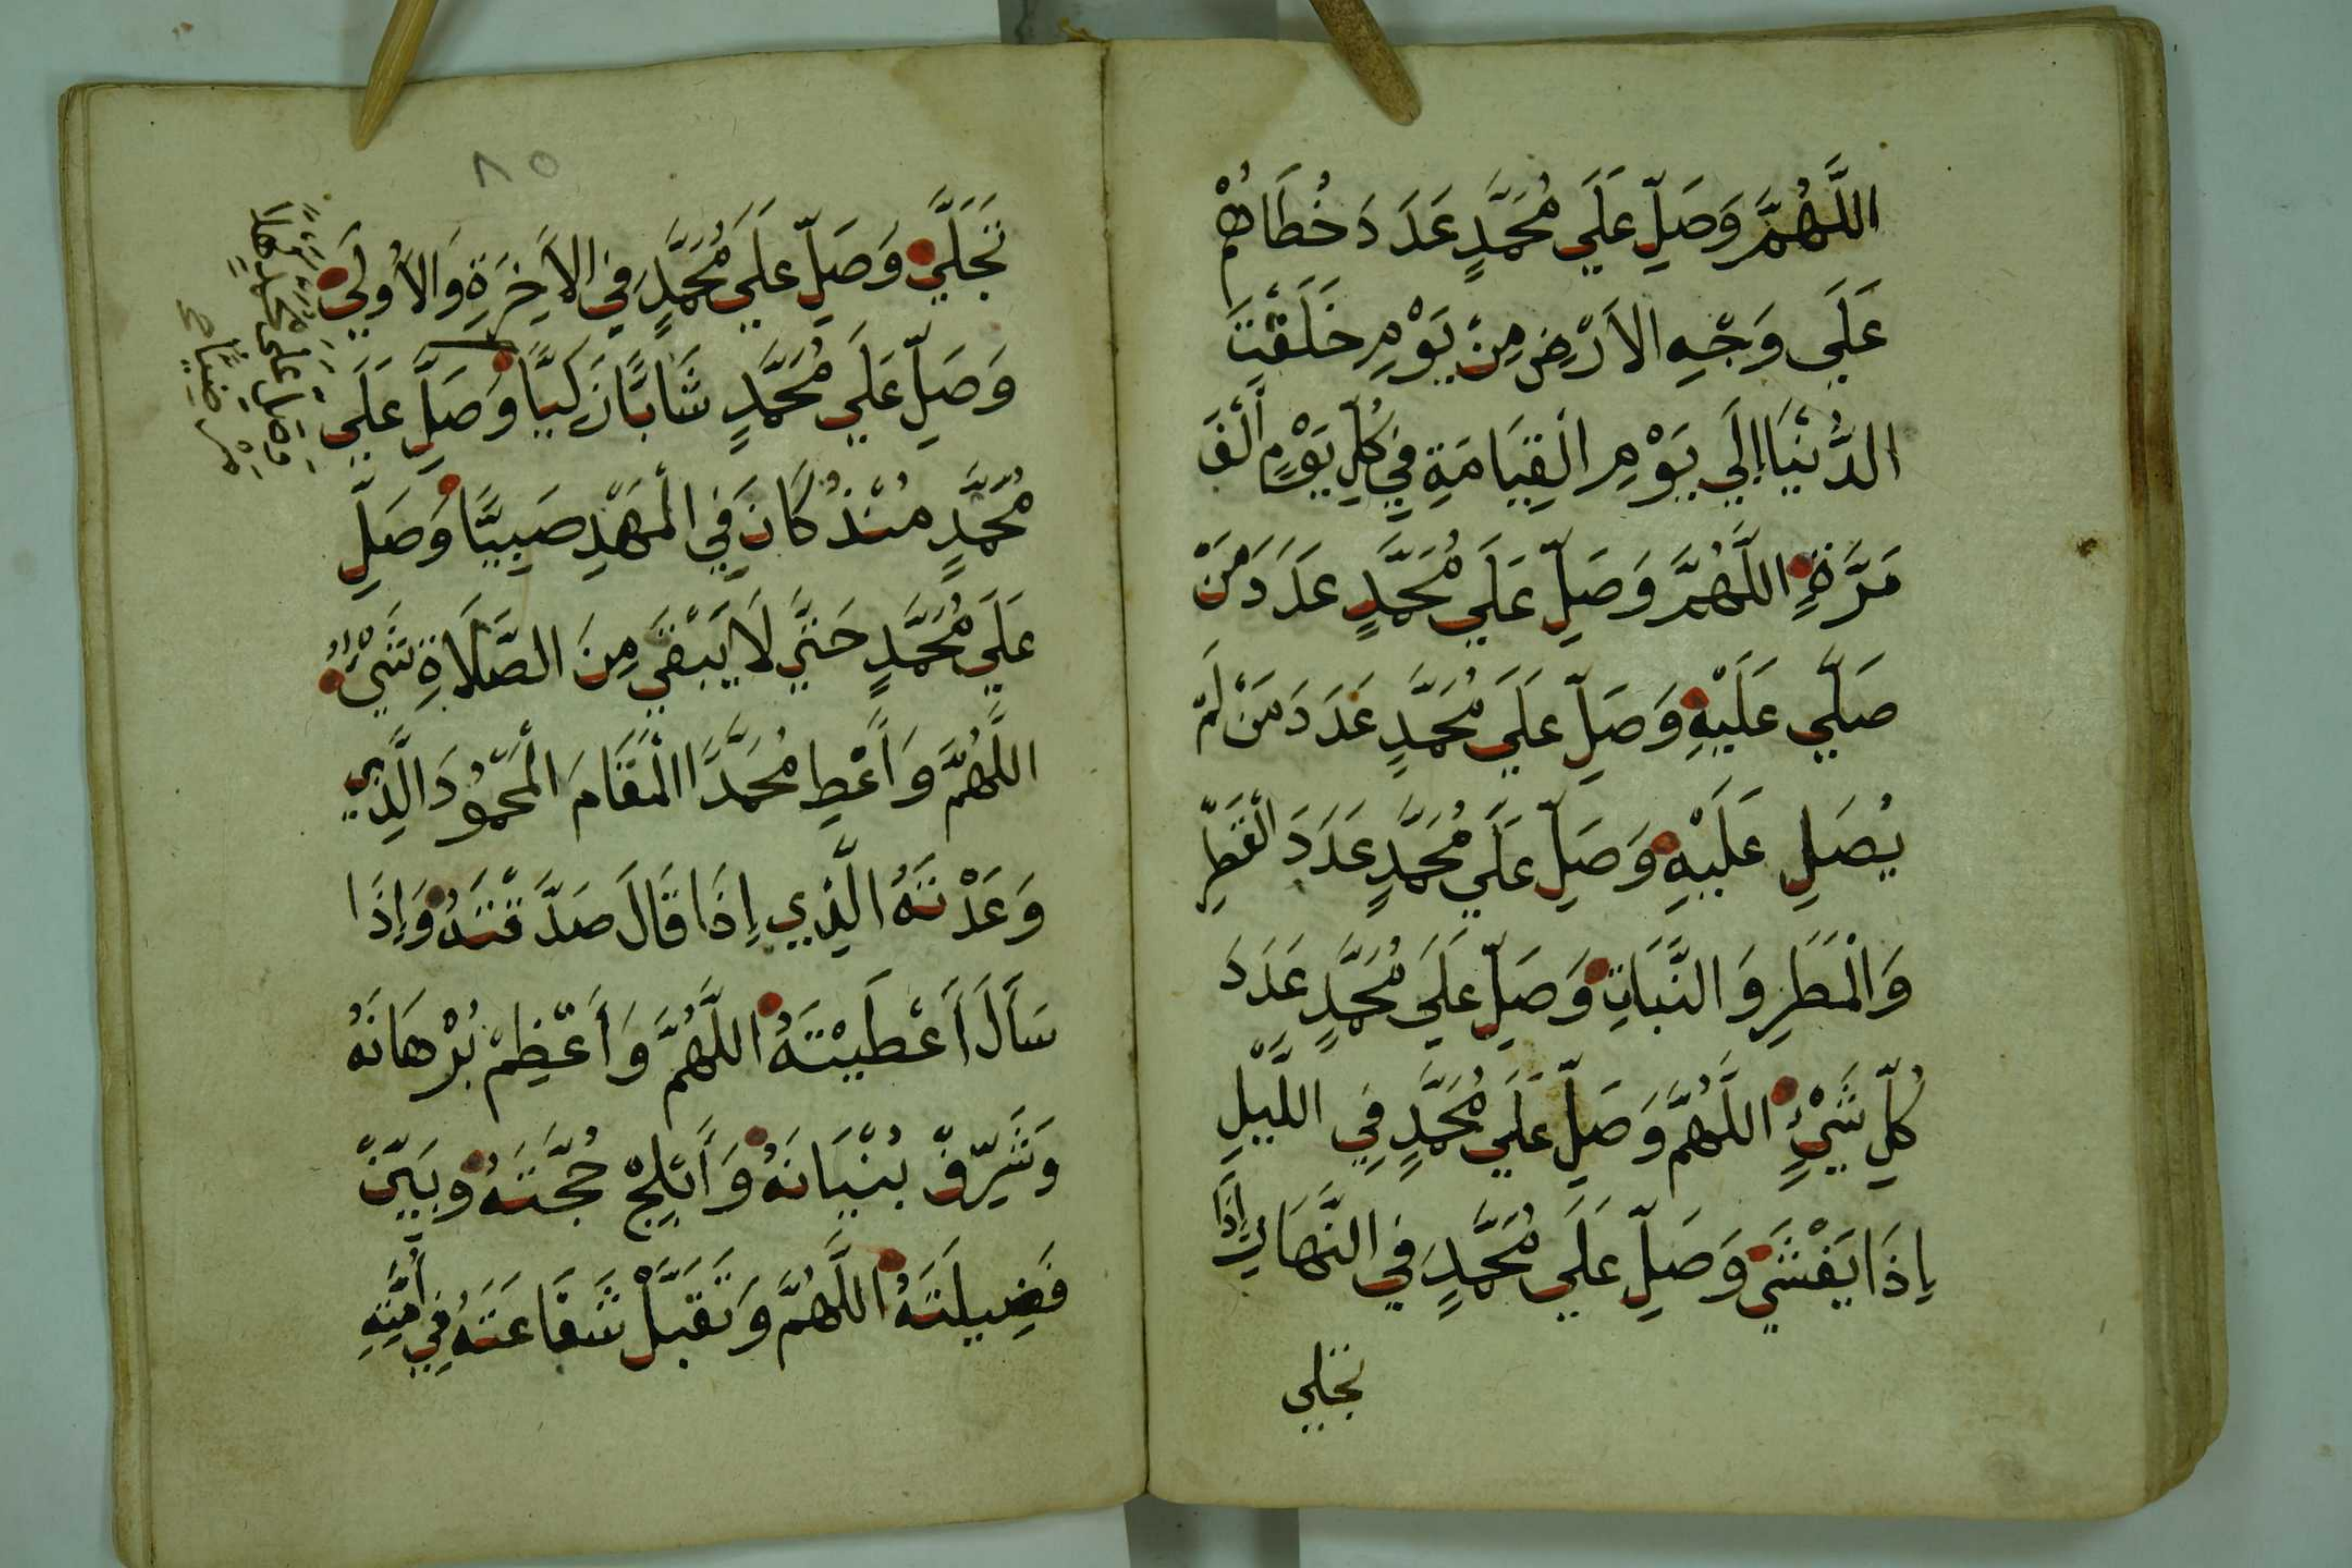 اللَّهُمَّ وَصَلِّ عَلَي مُحَمَّدٍ عَدَدَ خُطَاهُمْ
عَلَي وَجْهِ الاَرْضِ مِنْ يَوْمِ خَلَقْتَ
الدُّنْيَا إِلَي يَوْمِ الْقِيَامَةِ فِي كُلِّ يَوْمٍ أَلْفَ
مَرَّةٍ اللَّهُمَّ وَصَلِّ عَلَي مُحَمَّدٍ عَدَدَ مَنْ
صَلَّي عَلَيْهِ وَصَلِّ عَلَي مُحَمَّدٍ عَدَدَ مَنْ لَمْ
يُصَلِ عَلَيْهِ وَصَلِّ عَلَي مُحَمَّدٍ عَدَدَ الْقَطْرِ
وَالْمَطَرِ وَالنَّبَاتِ وَصَلِّ عَلَي مُحَمَّدٍ عَدَدَ
كُلِّ شَيْءٍ اللَّهُمَّ وَصَلِّ عَلَي مُحَمَّدٍ فِي اللَّيْلِ
إِذَا يَغْشَي وَصَلِّ عَلَي مُحَمَّدٍ فِي النَّهَارِ إِذَا
تجلي
٨٥
تَجَلَّي وَصَلِّ عَلَي مُحَمَّدٍ فِي الاَخِرَةِ وَالاُولَي
وَصَلِّ عَلَي مُحَمَّدٍ شَابًّا زَكِيًّا وَصَلِّ عَلَي
مُحَمَّدٍ مُنْذُ كَانَ فِي الْمَهْدِ صَبِيًّا وَصَلِّ
عَلَي مُحَمَّدٍ حَتَّي لَا يَبْقَي مِنَ الصَّلَاةِ شَيْءٌ
اللَّهُمَّ وَأَعْطِ مُحَمَّدًا الْمَقَامَ الْمَحْمُودَ الَّذِي
وَعَدْتَهُ الَّذِي إِذَا قَالَ صَدَّقْتَهُ وَإِذَا
سَأَلَ أَعْطَيْتَهُ اللَّهُمَّ وَأَعْظِمْ بُرْهَانَهُ
وَشَرِّفْ بُنْيَانَهُ وَأَبْلِجْ حُجَّتَهُ وَبَيِّنْ
فَضِيلَتَهُ اللَّهُمَّ وَتَقَبَّلْ شَفَاعَتَهُ فِي أُمَّتِهِ
وَصَلِّ عَلَى مُحَمَّدٍ كَهْلًا
مَرْضِيًّا صح